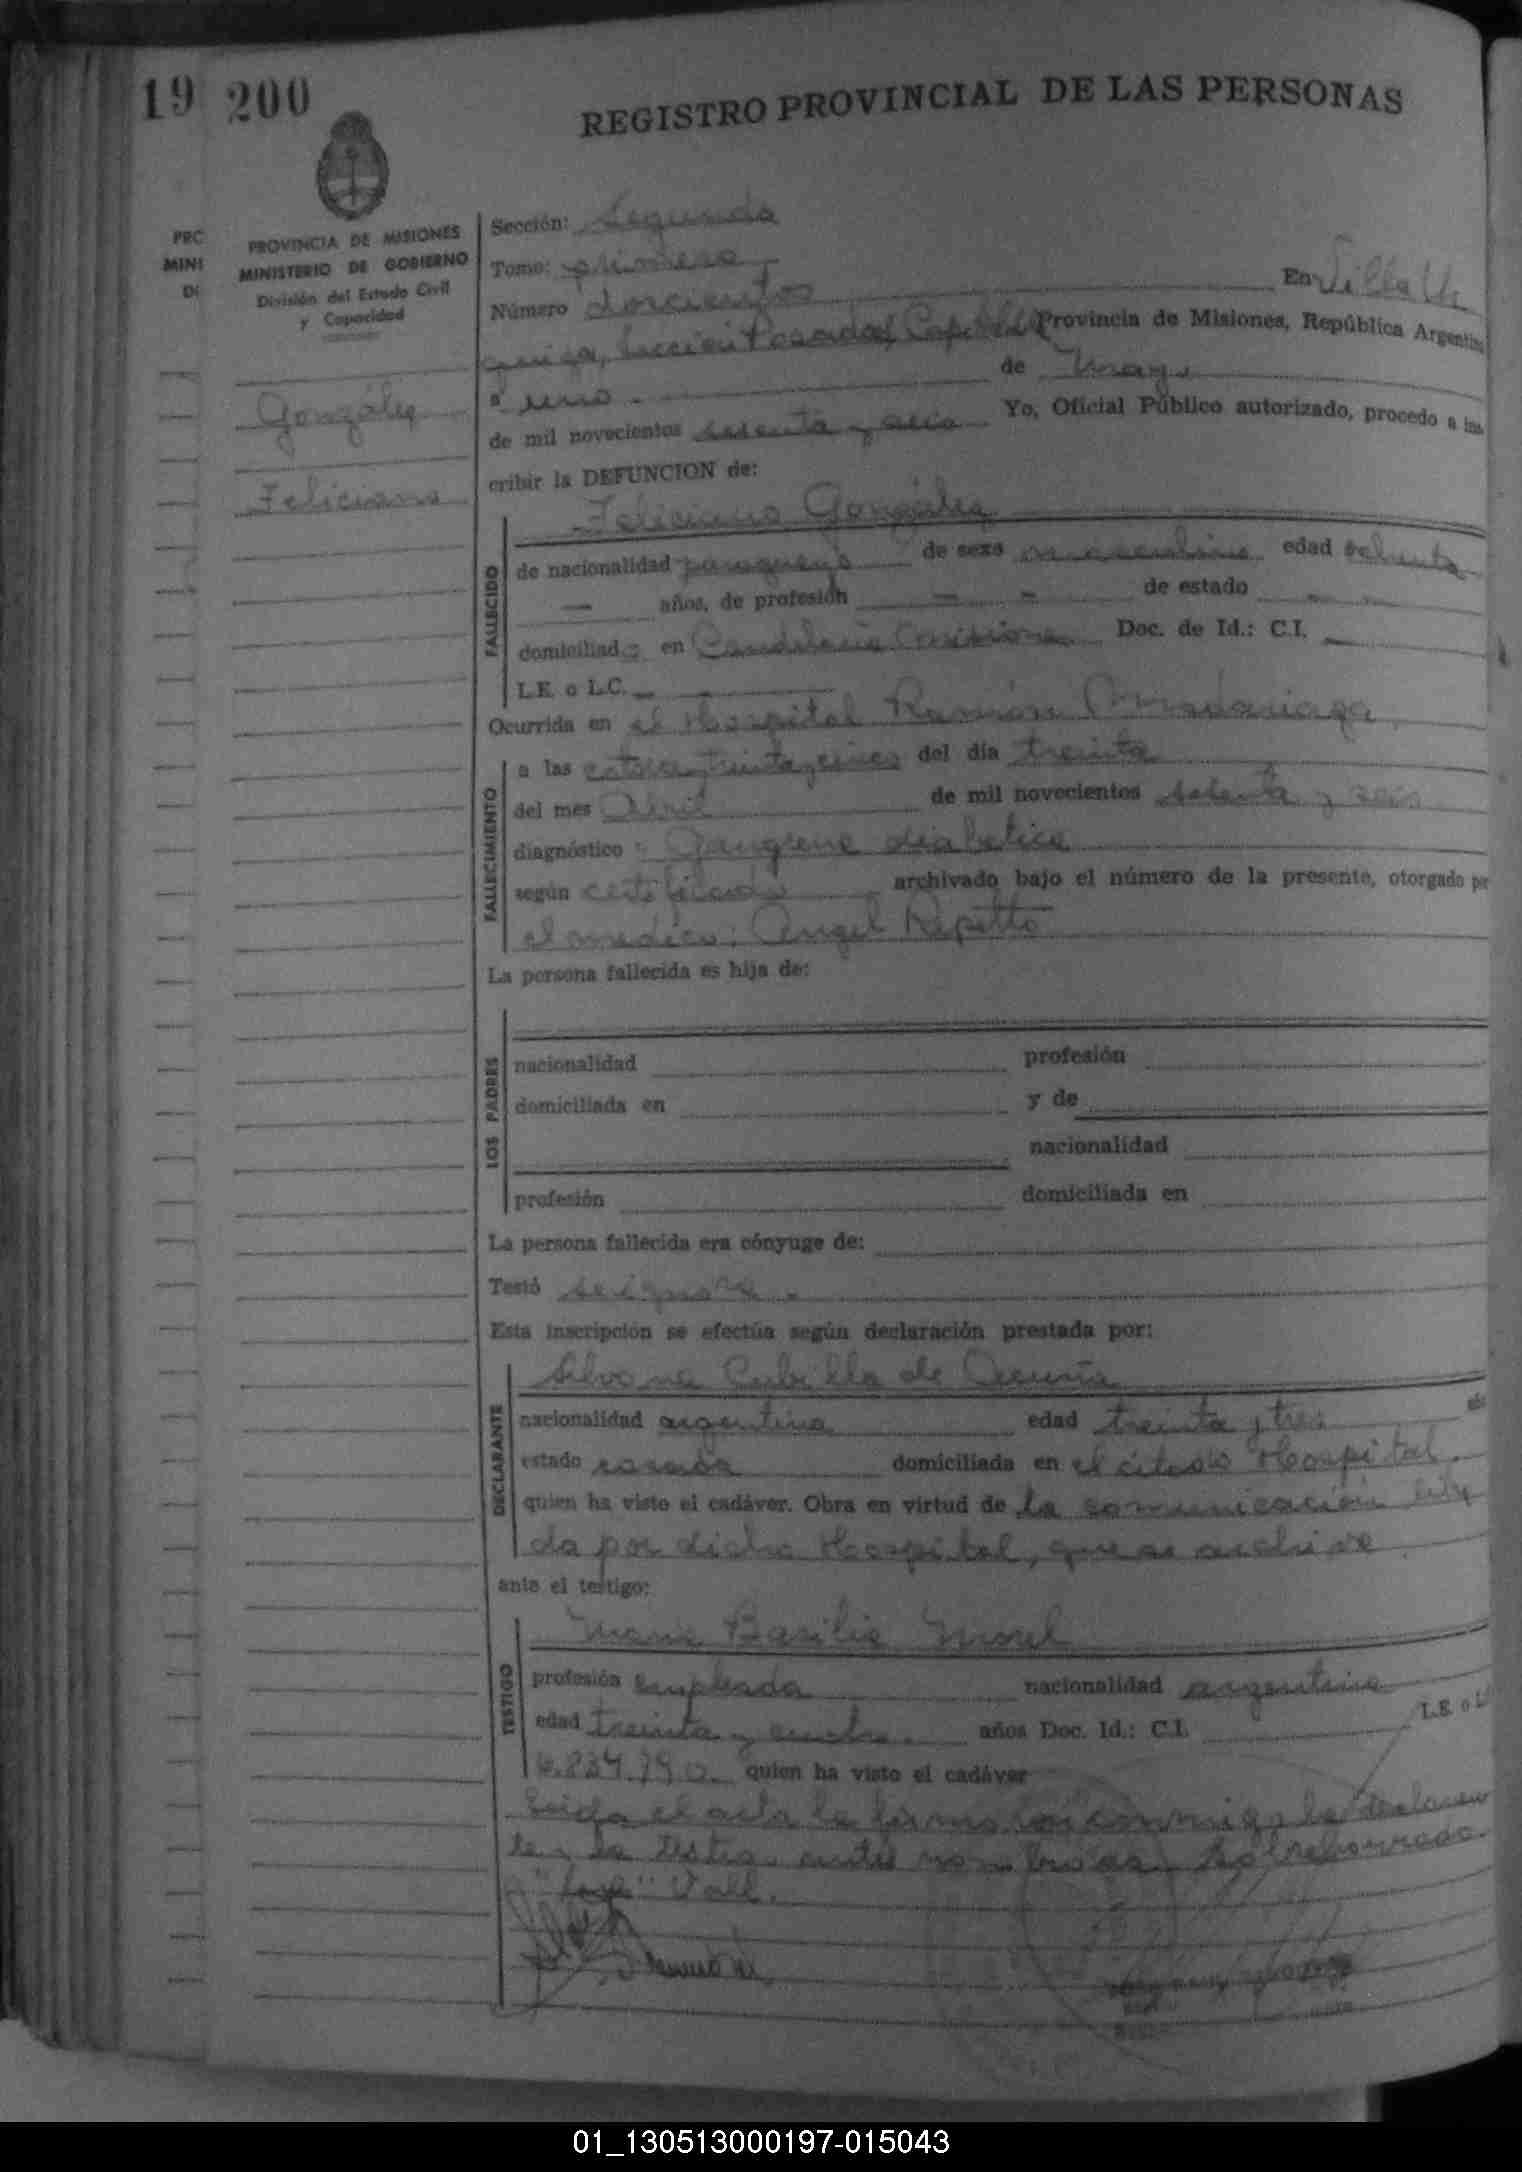 19 200
REGISTRO PROVINCIAL DE LAS PERSONAS
PRC
MINI
DI
PROVINCIA DE MISIONES
MINISTERIO DE GOBIERNO
División del Estado Civil
y Capacidad
González
Feliciano
Sección: Segunda
Tomo: primero
Número doscientos En Villa Ur
quiza, Sección Posadas Capital Provincia de Misiones, República Argentina
a uno de mayo
de mil novecientos setenta y seis Yo, Oficial Público autorizado, procedo a ins
cribir la DEFUNCION de:
Feliciano González
FALLECIDO
de nacionalidad paraguayo de sexo masculino edad ochenta
años, de profesión — — de estado — —
domiciliado en Candelaria Misiones Doc. de Id.: C.I. —
L.E. o L.C. —
Ocurrida en el Hospital Ramón Madariaga
FALLECIMIENTO
a las catorce, treinta y cinco del día treinta
del mes Abril de mil novecientos setenta y seis
diagnóstico: Gangrena diabetica
según certificado archivado bajo el número de la presente, otorgado por
el medico: Angel Repetto
La persona fallecida es hija de:
LOS PADRES
nacionalidad profesión
domiciliada en y de
nacionalidad
profesión domiciliada en
La persona fallecida era cónyuge de:
Testó se ignora.
Esta inscripción se efectúa según declaración prestada por:
DECLARANTE
Silvana Cubilla de Acuña
nacionalidad argentina edad treinta y tres
estado casada domiciliada en el citado Hospital.
quien ha visto el cadáver. Obra en virtud de la comunicación
da por dicho Hospital, que se archiva
ante el testigo:
TESTIGO
María Basilia Morel
profesión empleada nacionalidad argentina
edad treinta y cuatro años Doc. Id.: C.I. L.E. o L.
6.834.790 quien ha visto el cadáver
Leida el acta la firman conmigo la declaran
te y la testigo, antes nombradas. Sobreborrado
Vale.
01_130513000197-015043